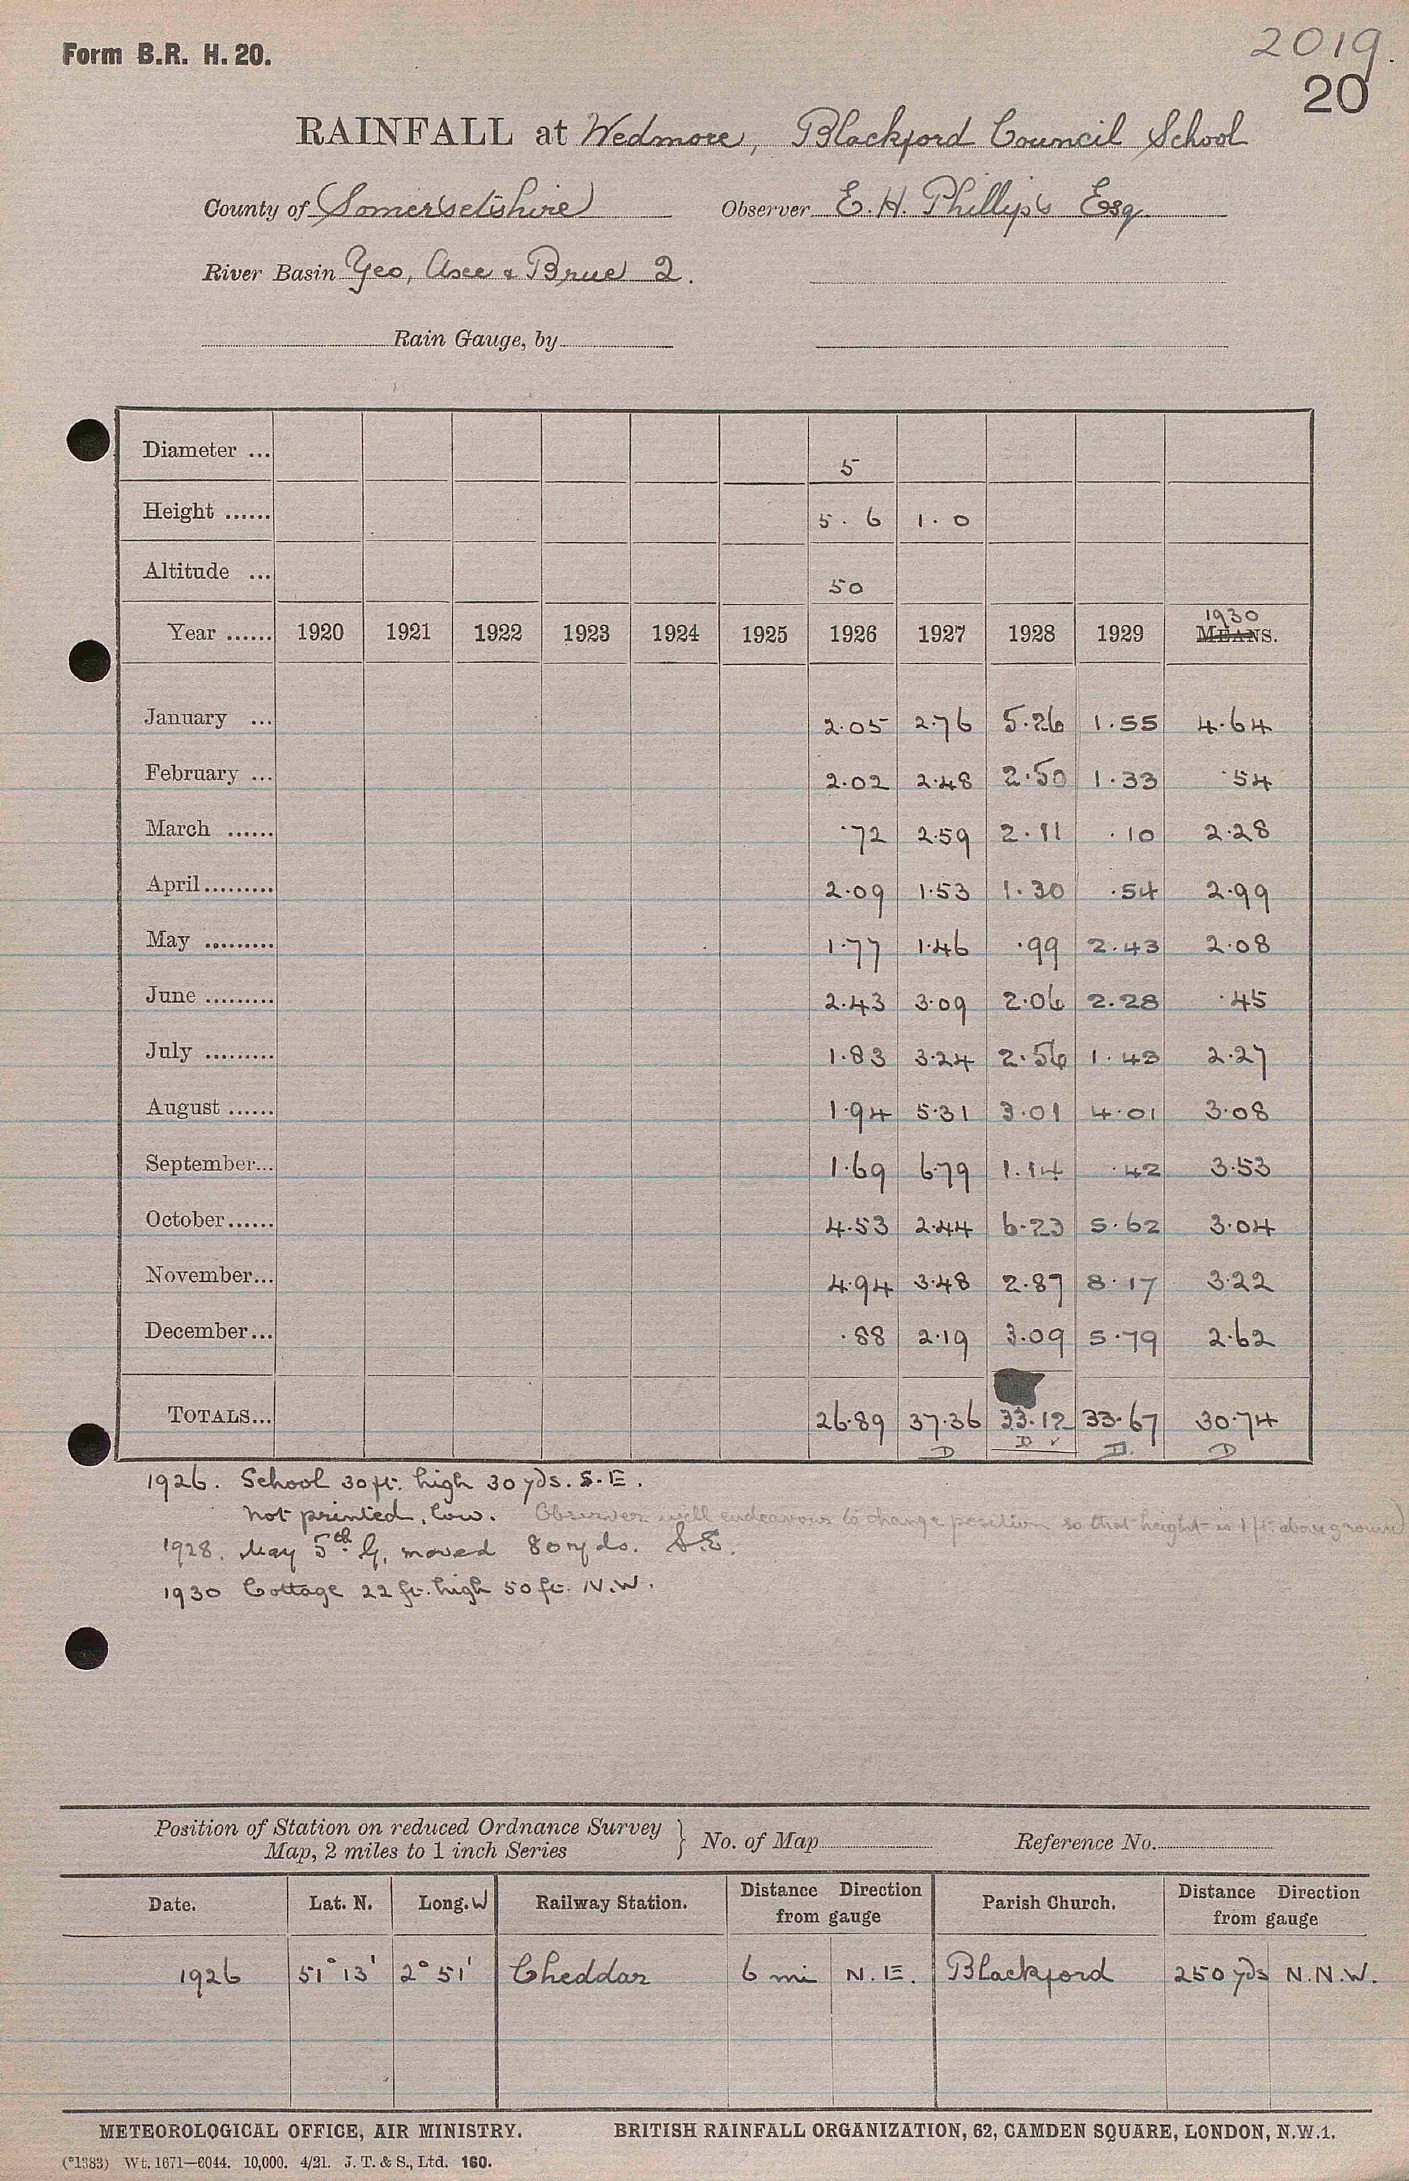 Form B.R. H. 20.
2019.
20
RAINFALL at Wedmore, Blackford Council School
County of Somersetshire Observer E. H. Phillips Esq.
River Basin Yeo, Axe & Brue 2.
Rain Gauge, by
Diameter ... 5
Height ...... 5 . 6 1 . 0
Altitude ... 50
1930
Year ...... 1920 1921 1922 1923 1924 1925 1926 1927 1928 1929 MEANS.
January ... 2.05 2.76 5.26 1.55 4.64
February ... 2.02 2.48 2.50 1.33 .54
March ...... .72 2.59 2.11 .10 2.28
April ......... 2.09 1.53 1.30 .54 2.99
May ......... 1.77 1.46 .99 2.43 2.08
June ......... 2.43 3.09 2.06 2.28 .45
July ......... 1.83 3.24 2.56 1.43 2.27
August ...... 1.94 5.31 3.01 4.01 3.08
September... 1.69 6.79 1.14 .42 3.53
October...... 4.53 2.44 6.23 5.62 3.04
November... 4.94 3.48 2.87 8.17 3.22
December... .88 2.19 3.09 5.79 2.62
TOTALS... 26.89 37.36 33.12 33.67 30.74
D D ✓ D. D
1926. School 30 ft. high 30 yds. S.E.
Not printed, low. Observer will endeavour to change position so that height is 1 ft. above ground
1928. May 5th G. moved 80 yds. S.E.
1930 Cottage 22 ft. high 50 ft. N.W.
Position of Station on reduced Ordnance Survey
Map, 2 miles to 1 inch Series } No. of Map Reference No.
Date. Lat. N. Long. W Railway Station. Distance Direction from gauge Parish Church. Distance Direction from gauge
1926 51° 13' 2° 51' Cheddar 6 mi N.E. Blackford 250 yds N.N.W.
METEOROLOGICAL OFFICE, AIR MINISTRY. BRITISH RAINFALL ORGANIZATION, 62, CAMDEN SQUARE, LONDON, N.W.1.
(*1383) Wt. 1671—6044. 10,000. 4/21. J. T. & S., Ltd. 160.